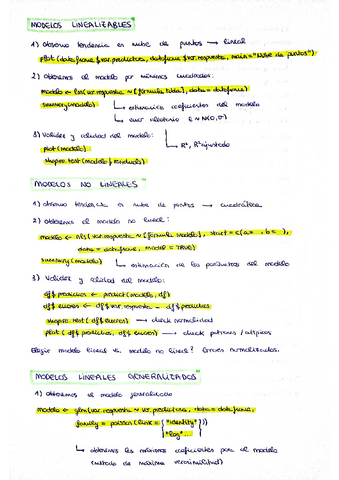 MODELOS LINEALIZABLES
1) Observo tendencia en nube de puntos → lineal
plot(dataframe$var.predictora, dataframe$var.respuesta, main="Nube de puntos")
2) Obtenemos el modelo por mínimos cuadrados:
modelo ← lm(var.respuesta ~ [fórmula], data = dataframe)
summary(modelo) → estimación coeficientes del modelo
→ error aleatorio ε ~ N(0,σ)
3) Validez y calidad del modelo: → R², R² ajustado
plot(modelo)
shapiro.test(modelo$residuals)
MODELOS NO LINEALES
1) Observo tendencia en nube de puntos → cuadrática
2) Obtenemos el modelo no lineal:
modelo ← nls(var.respuesta ~ [fórmula modelo], start = c(a= , b= ),
data = dataframe, model = TRUE)
summary(modelo) → estimación de los parámetros del modelo
3) Validez y calidad del modelo:
df$predichos ← predict(modelo, df)
df$errores ← df$var.respuesta - df$predichos
shapiro.test(df$errores) → check normalidad
plot(df$predichos, df$errores) → check patrones / atípicos
Elegir modelo lineal vs. modelo no lineal? Errores normalizados.
MODELOS LINEALES GENERALIZADOS
1) Obtenemos el modelo generalizado
modelo ← glm(var.respuesta ~ var.predictora, data = dataframe,
family = poisson(link = { "identity" }))
"log"...
→ obtenemos los coeficientes por el modelo
(método de máxima verosimilitud)